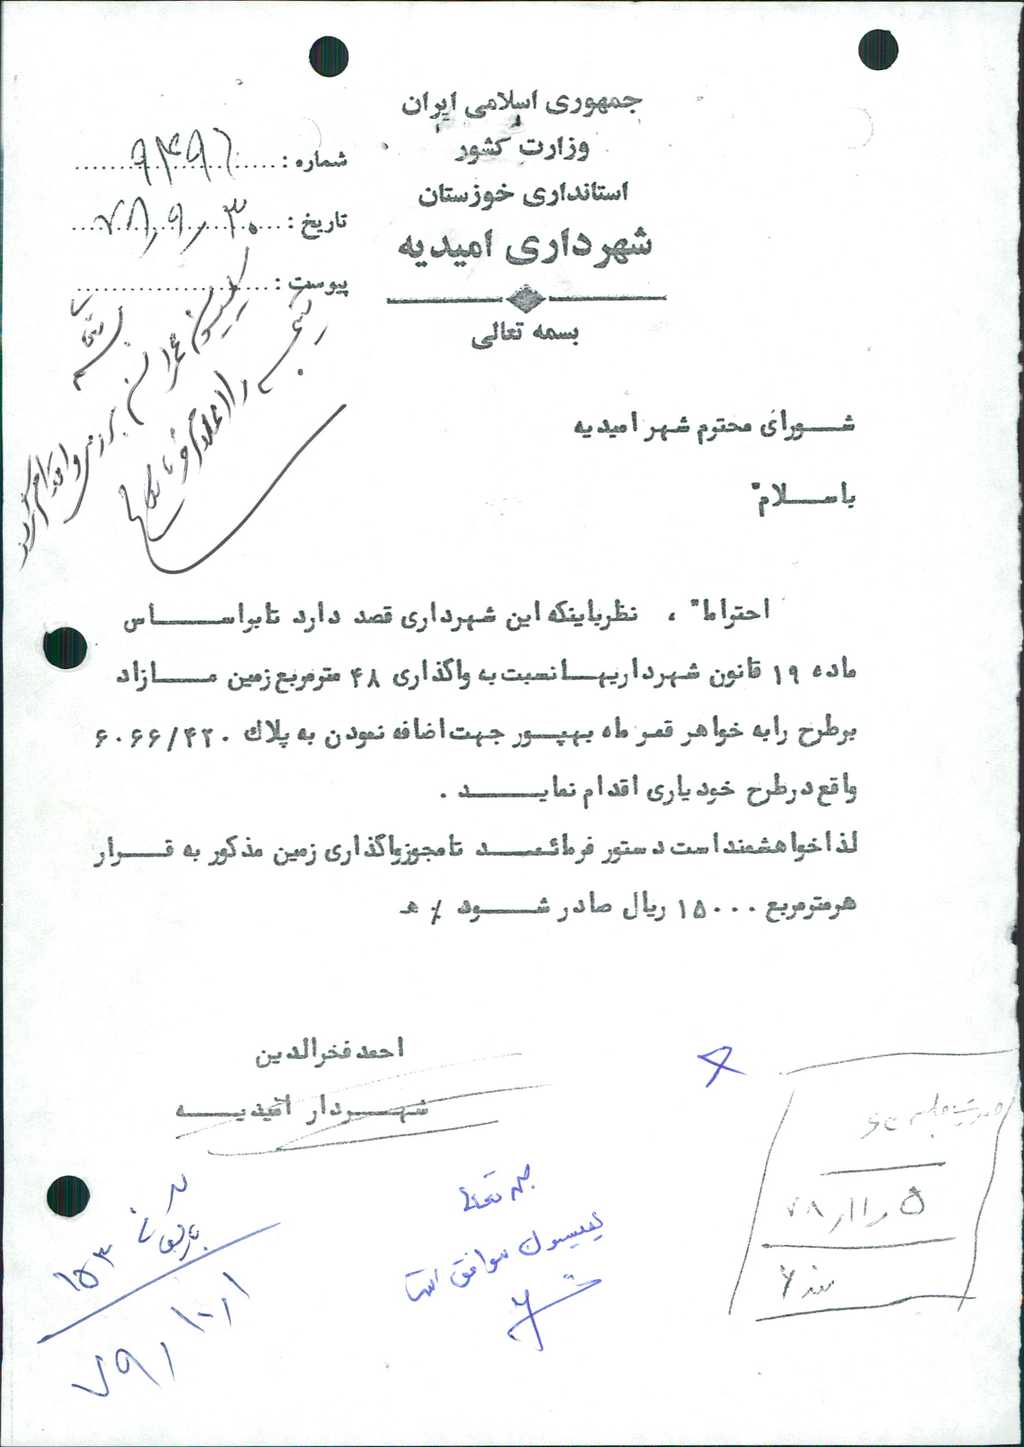 جمهوری اسلامی ایران
وزارت کشور
استانداری خوزستان
شهرداری امیدیه
شماره : ۹۴۹۶
تاریخ : ۷۸٫۹٫۳۰
پیوست :
بسمه تعالی
بسمه تعالی
کمیسیون عمران بررسی و اقدام
را اعلام
شورای محترم شهر امیدیه
باسلام"
احتراما" ، نظرباینکه این شهرداری قصد دارد تابراساس
ماده ۱۹ قانون شهرداریها نسبت به واگذاری ۴۸ مترمربع زمین مازاد
برطرح رابه خواهر قمر ماه بهپور جهت اضافه نمودن به پلاک ۶۰۶۶/۴۲۰
واقع درطرح خودیاری اقدام نماید .
لذا خواهشمند است دستور فرمائید تامجوزواگذاری زمین مذکور به قرار
هرمترمربع ۱۵۰۰۰ ریال صادر شود ٪ هـ
احمد فخرالدین
شهردار امیدیه
صورتجلسه
۵ ر۱۱ر ۷۸
بند ۶
بسمه تعالی
کمیسیون موافق است
۱۵۳
۷۹٫۱۰٫۱